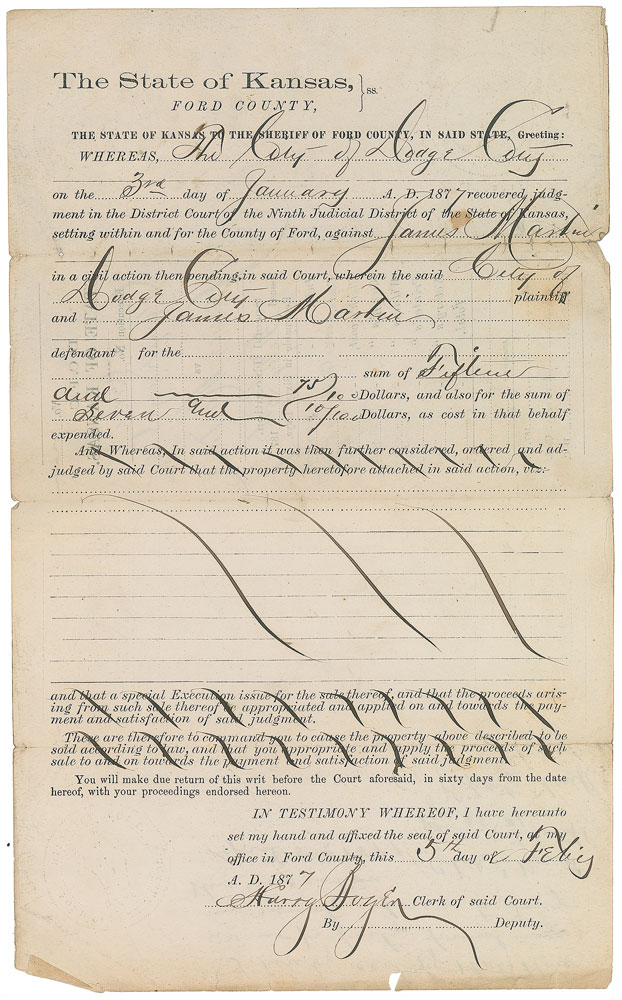 The State of Kansas, } ss.
FORD COUNTY,
THE STATE OF KANSAS TO THE SHERIFF OF FORD COUNTY, IN SAID STATE, Greeting:
WHEREAS, The City of Dodge City
on the 3rd day of January A. D. 1877 recovered judg-
ment in the District Court of the Ninth Judicial District of the State of Kansas,
setting within and for the County of Ford, against James Martin
in a civil action then pending, in said Court, wherein the said City of
Dodge City plaintiff
and James Martin
defendant for the
sum of Fifteen
and 75/100 Dollars, and also for the sum of
Seven and 10/100 Dollars, as cost in that behalf
expended.
And Whereas, In said action it was then further considered, ordered and ad-
judged by said Court that the property heretofore attached in said action, viz:-
and that a special Execution issue for the sale thereof, and that the proceeds aris-
ing from such sale thereof be appropriated and applied on and towards the pay-
ment and satisfaction of said judgment.
These are therefore to command you to cause the property above described to be
sold according to law, and that you appropriate and apply the proceeds of such
sale to and on towards the payment and satisfaction of said judgment.
You will make due return of this writ before the Court aforesaid, in sixty days from the date
hereof, with your proceedings endorsed hereon.
IN TESTIMONY WHEREOF, I have hereunto
set my hand and affixed the seal of said Court, at my
office in Ford County, this 5th day of Feby
A. D. 1877
Harry Boyer Clerk of said Court.
By Deputy.